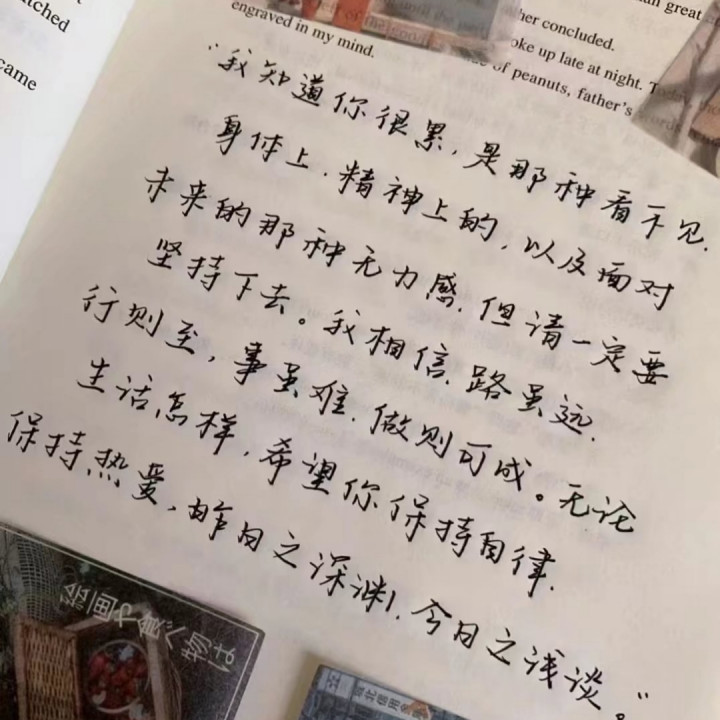 tched
came
engraved in my mind.
her concluded.
oke up late at night. T
of peanuts, father's
an great
words
"我知道你很累,是那种看不见.
身体上.精神上的,以及面对
未来的那种无力感.但请一定要
坚持下去。我相信.路虽远.
行则至,事虽难.做则可成。无论
生活怎样,希望你保持自律.
保持热爱,昨日之深渊,今日之浅谈。"